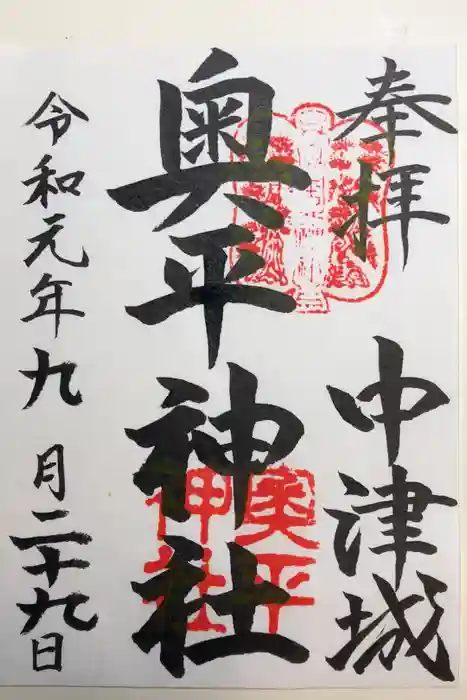 奉拝
中津城
奥平神社
令和元年九月二十九日
奥平
神社